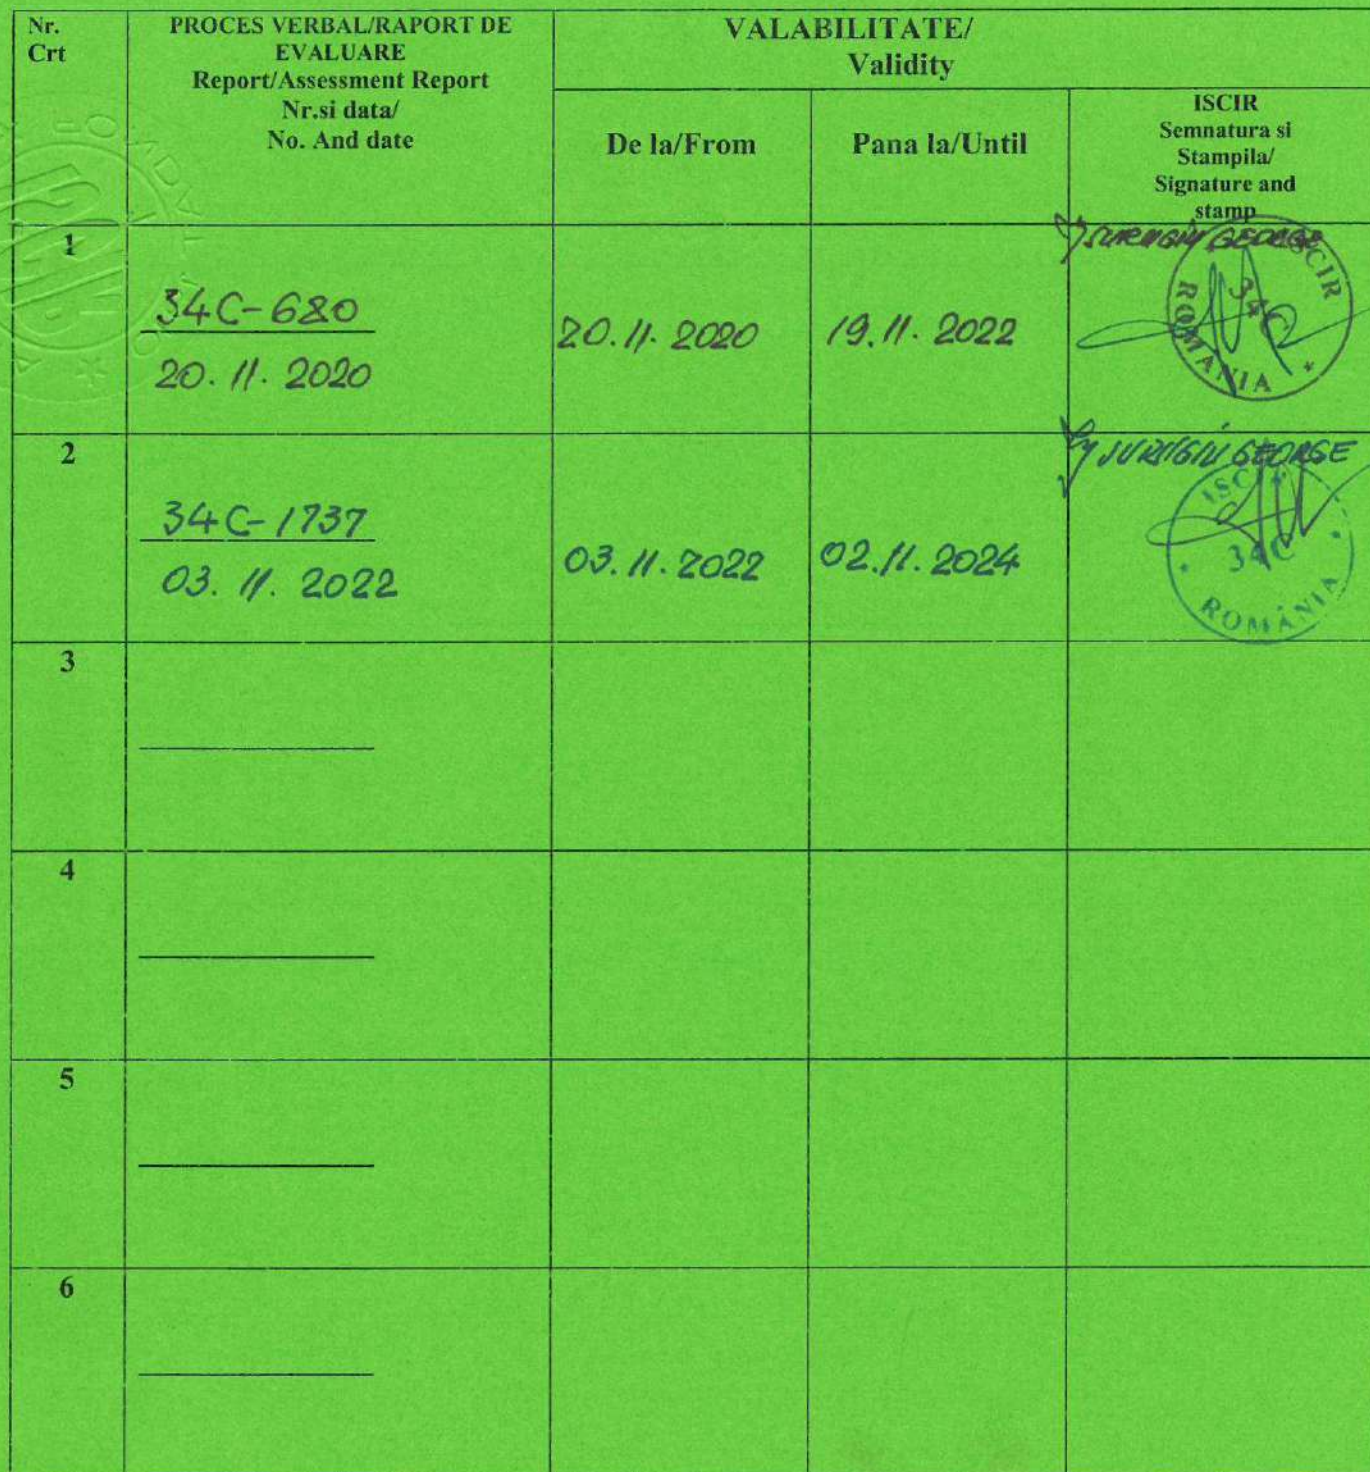 Nr.
Crt
PROCES VERBAL/RAPORT DE
EVALUARE
Report/Assessment Report
Nr.si data/
No. And date
VALABILITATE/
Validity
De la/From
Pana la/Until
ISCIR
Semnatura si
Stampila/
Signature and
stamp
1
34C-680
20.11.2020
20.11.2020
19.11.2022
GEORGE
ISCIR
34C
ROMANIA
2
34C-1737
03.11.2022
03.11.2022
02.11.2024
GEORGE
ISCIR
34C
ROMÂNIA
3
4
5
6